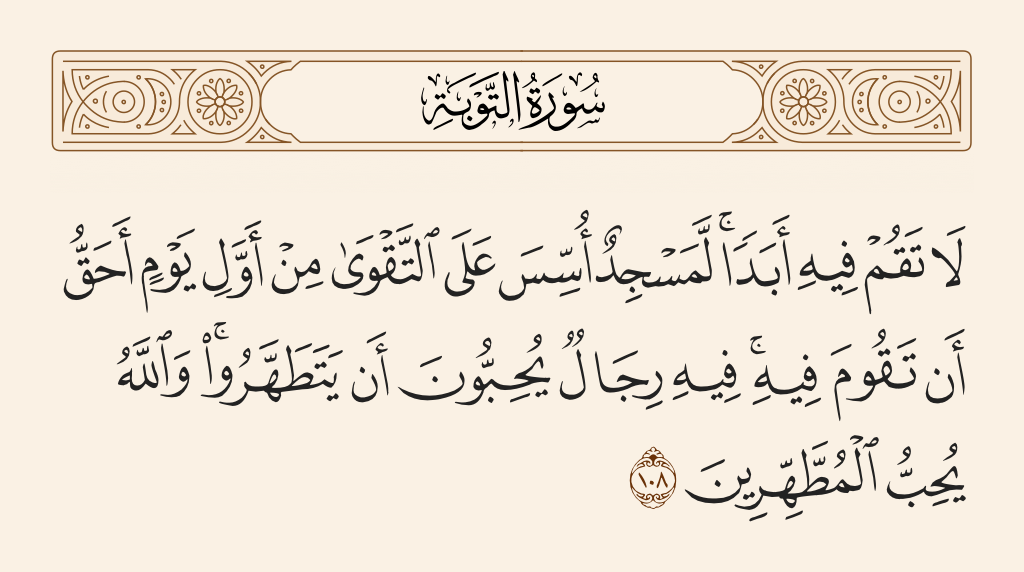 سُورَةُ التَّوْبَةِ
لَا تَقُمْ فِيهِ أَبَدًاۚ لَّمَسْجِدٌ أُسِّسَ عَلَى ٱلتَّقْوَىٰ مِنْ أَوَّلِ يَوْمٍ أَحَقُّ
أَن تَقُومَ فِيهِۚ فِيهِ رِجَالٌ يُحِبُّونَ أَن يَتَطَهَّرُوا۟ۚ وَٱللَّهُ
يُحِبُّ ٱلْمُطَّهِّرِينَ ١٠٨